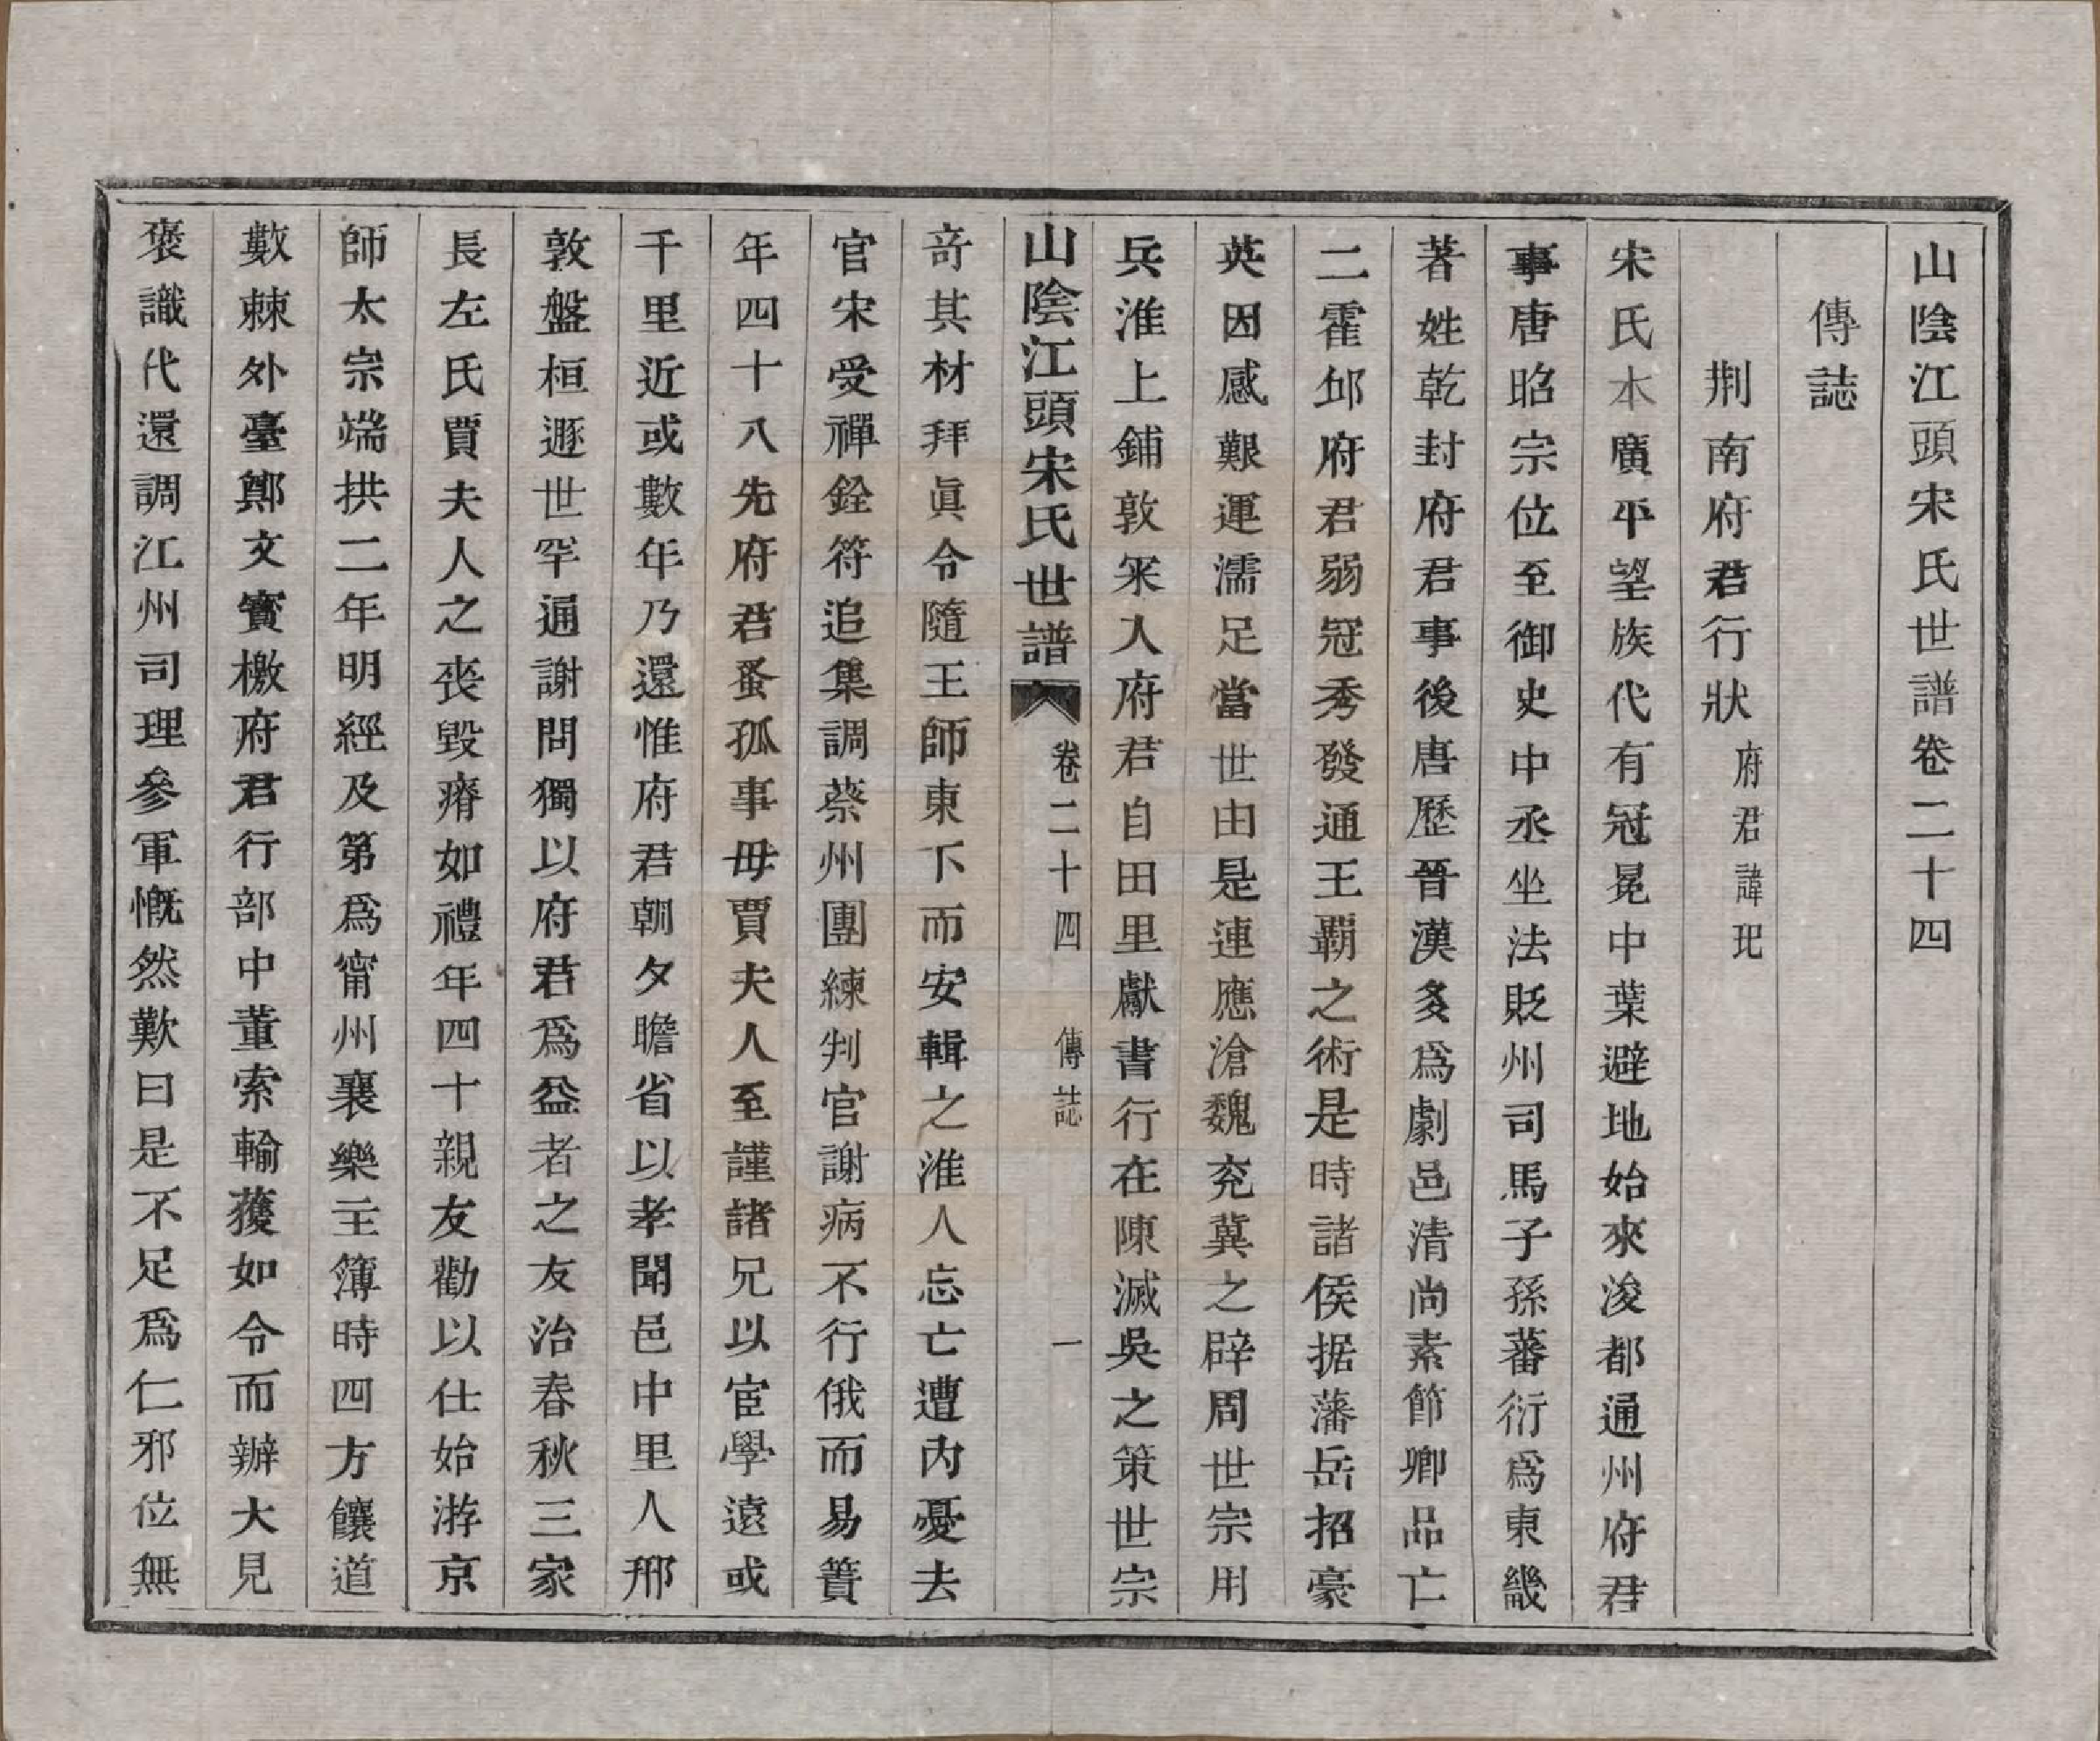 山陰江頭宋氏世譜卷二十四
傳誌
荆南府君行狀府君諱玘
宋氏本廣平望族代有冠冕中葉避地始來浚都通州府君
事唐昭宗位至御史中丞坐法貶州司馬子孫蕃衍爲東畿
著姓乾封府君事後唐歷晉漢多爲劇邑清尚素節卿品亡
二霍邱府君弱冠秀發通王覇之術是時諸侯据藩岳招豪
英因感艱運濡足當世由是連應滄魏兖冀之辟周世宗用
兵淮上鋪敦罙入府君自田里獻書行在陳滅吳之策世宗
山陰江頭宋氏世譜 卷二十四 傳誌 一
竒其材拜眞令隨王師東下而安輯之淮人忘亡遭内憂去
官宋受禪銓符追集調蔡州團練判官謝病不行俄而易簀
年四十八先府君蚤孤事母賈夫人至謹諸兄以宦學遠或
千里近或數年乃還惟府君朝夕瞻省以孝聞邑中里人邢
敦盤桓遯世罕通謝問獨以府君爲益者之友治春秋三家
長左氏賈夫人之喪毀瘠如禮年四十親友勸以仕始游京
師太宗端拱二年明經及第爲甯州襄樂主簿時四方饟道
數棘外臺鄭文寳檄府君行部中董索輸蒦如令而辦大見
褒識代還調江州司理參軍慨然歎曰是不足爲仁邪位無